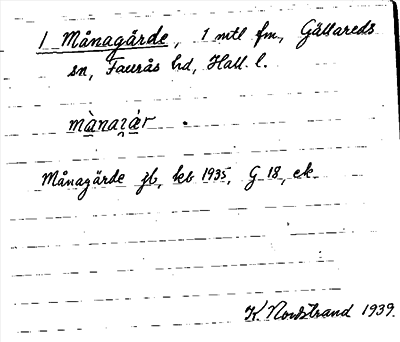 1 Månagärde, 1 mtl fm, Gällareds
sn, Faurås hd, Hall. l.
Månagärde jb, kb 1935, G 18, ek
K. Nordstrand 1939.